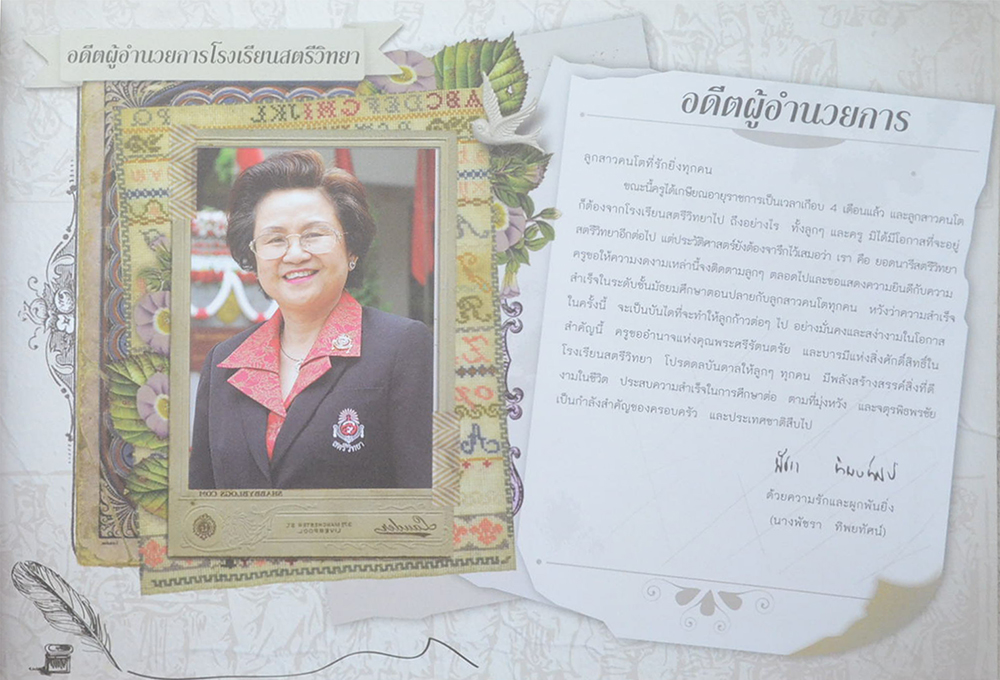 อดีตผู้อำนวยการโรงเรียนสตรีวิทยา
สตรีวิทยา
SHABBYBLOGS.COM
Lauder
37 MANCHESTER ST.
LIVERPOOL
อดีตผู้อำนวยการ
ลูกสาวคนโตที่รักยิ่งทุกคน
ขณะนี้ครูได้เกษียณอายุราชการเป็นเวลาเกือบ 4 เดือนแล้ว และลูกสาวคนโต
ก็ต้องจากโรงเรียนสตรีวิทยาไป ถึงอย่างไร ทั้งลูกๆ และครู มิได้มีโอกาสที่จะอยู่
สตรีวิทยาอีกต่อไป แต่ประวัติศาสตร์ยังต้องจารึกไว้เสมอว่า เรา คือ ยอดนารีสตรีวิทยา
ครูขอให้ความงดงามเหล่านี้จงติดตามลูกๆ ตลอดไปและขอแสดงความยินดีกับความ
สำเร็จในระดับชั้นมัธยมศึกษาตอนปลายกับลูกสาวคนโตทุกคน หวังว่าความสำเร็จ
ในครั้งนี้ จะเป็นบันไดที่จะทำให้ลูกก้าวต่อๆ ไป อย่างมั่นคงและสง่างามในโอกาส
สำคัญนี้ ครูขออำนาจแห่งคุณพระศรีรัตนตรัย และบารมีแห่งสิ่งศักดิ์สิทธิ์ใน
โรงเรียนสตรีวิทยา โปรดดลบันดาลให้ลูกๆ ทุกคน มีพลังสร้างสรรค์สิ่งที่ดี
งามในชีวิต ประสบความสำเร็จในการศึกษาต่อ ตามที่มุ่งหวัง และจตุรพิธพรชัย
เป็นกำลังสำคัญของครอบครัว และประเทศชาติสืบไป
ด้วยความรักและผูกพันยิ่ง
(นางพัชรา ทิพยทัศน์)